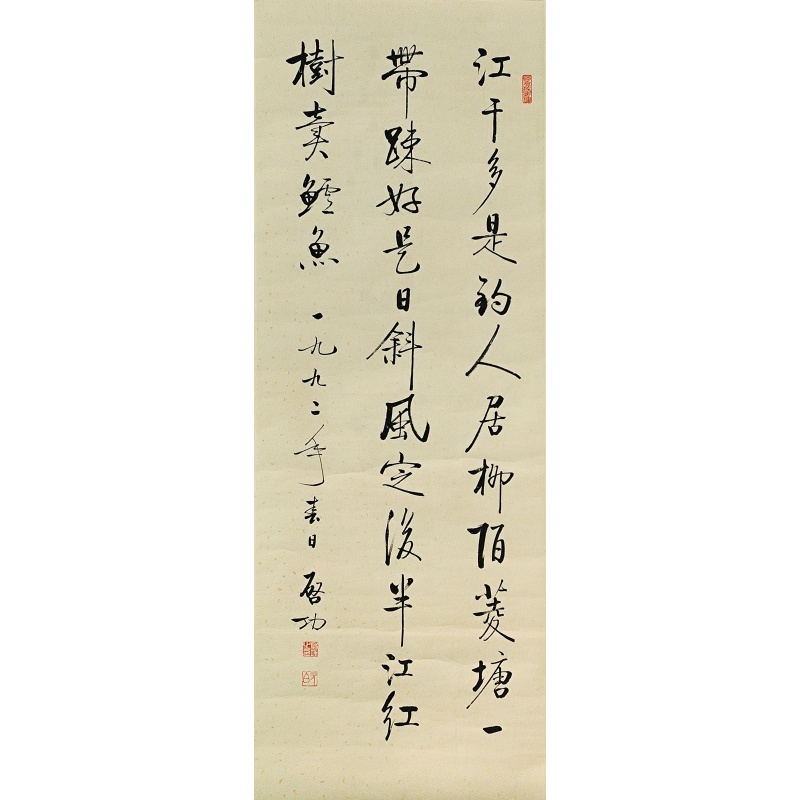 江干多是釣人居柳陌菱塘一
帶疎好是日斜風定後半江紅
樹賣鱸魚 一九九二年春日 啟功